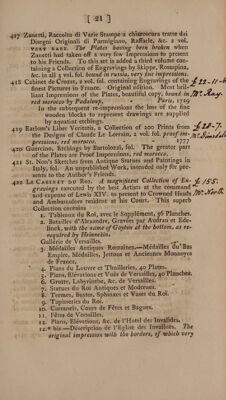 [ 21 ]
417 Zanetti, Raccolta di Varie Stampe a chiaroscura tratte dai
Disegni Originali di Parmigiano, Raffaele, &c. 2 vol.
VERY RARE. The Plates having been broken when
Zanetti had taken off a very few Impressions to present
to his Friends. To this set is added a third volume containing
a Collection of Engravings by Skippe, Rossigliani,
&c. in all 3 vol. fol. bound in russia, very fine impressions.
418 Cabinet de Crozat, 2 vol. fol. containing Engravings of the
finest Pictures in France. Original edition. Most brilliant
Impressions of the Plates, beautiful copy, bound in
red morocco by Padaloup. Paris, 1729
In the subsequent re-impressions the loss of the fine
wooden blocks to represent drawings are supplied
by aquatint etchings.
419 Earlom's Liber Veritatis, a Collection of 200 Prints from
the Designs of Claude Le Lorrain, 2 vol. fol. proof impressions,
red morocco. 1777
420 Guercino, Etchings by Bartolozzi, fol. The greater part
of the Plates are Proof Impressions, red morocco.
421 St. Non's Sketches from Antique Statues and Paintings in
Italy, fol. An unpublished Work, intended only for presents
to the Author's Friends.
422 LE CABINET DU ROI. A magnificent Collection of Engravings
executed by the best Artists at the command
and expense of Lewis XIV. to present to Crowned Heads
and Ambassadors resident at his Court. This superb
Collection contains
1. Tableaux du Roi, avec le Supplément, 56 Planches.
2. Batailles d'Alexandre, Gravées par Audran et Edelinck,
with the name of Goyton at the bottom, as required
by Heinnekin.
Gallerie de Versailles.
3. Médailles Antiques Romaines.—Médailles du Bas
Empire, Médailles, Jettons et Anciennes Monnoyes
de France.
4. Plans du Louvre et Thuilleries, 40 Plates.
5. Plans, Elévations et Vués de Versailles, 40 Planches.
6. Grotte, Labyrinthe, &c. de Versailles.
7. Statues du Roi Antiques et Modernes.
8. Termes, Bustes, Sphinxes et Vases du Roi.
9. Tapisseries du Roi.
10. Carousels, Cours de Fêtes et Bagues.
11. Fêtes de Versailles.
12. Plans, Elévations, &c. de l'Hotel des Invalides.
12.* bis.—Description de l'Eglise des Invalides. The
original impression with the borders, of which very
£ 22 - 11 -
Mr. Kay.
£ 28 - 7.
£ 155.
Mr. North